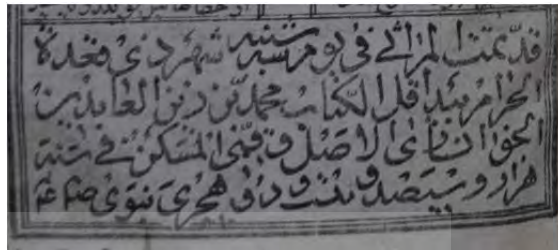 قد تمت المراثي في يوم سه شنبه شهر ذي قعدة
الحرام بيد اقل الكتاب محمد بن زين العابدين
الخوانساری الاصل و قمی المسكن في سنه
هزار و سیصد و بیست و دو هجری نبوی صلعم